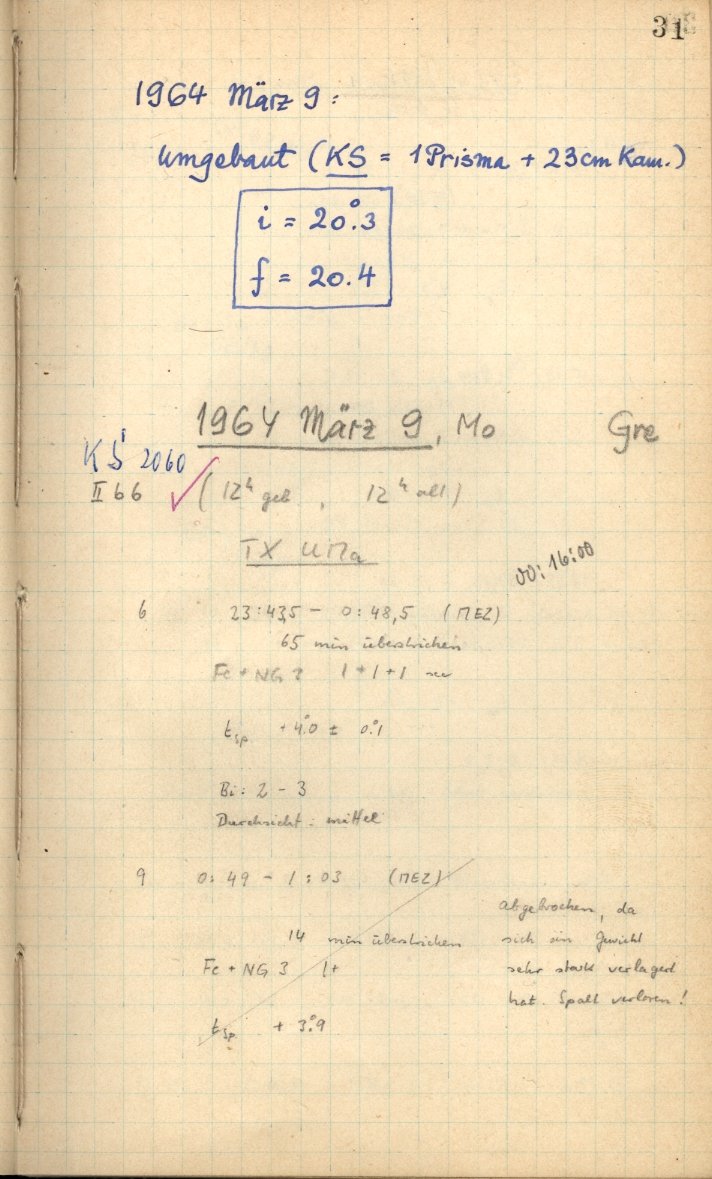 31
1964 März 9:
umgebaut (KS = 1 Prisma + 23cm Kam.)
i = 20°.3
f = 20.4
1964 März 9, Mo Gre
KS 2060
II 66 (12h geb , 12h all)
TX UMa
00:16:00
6 23:43,5 – 0:48,5 (MEZ)
65 min überstrichen
Fe + NG 3 1+1+1 sec
tsp +4°.0 ± 0°.1
Bi: 2 – 3
Durchsicht: mittel
9 0:49 – 1:03 (MEZ)
abgebrochen, da
14 min überstrichen sich ein Gewicht
Fe + NG 3 1+ sehr stark verlagert
hat. Spalt verloren!
tsp + 3°.9